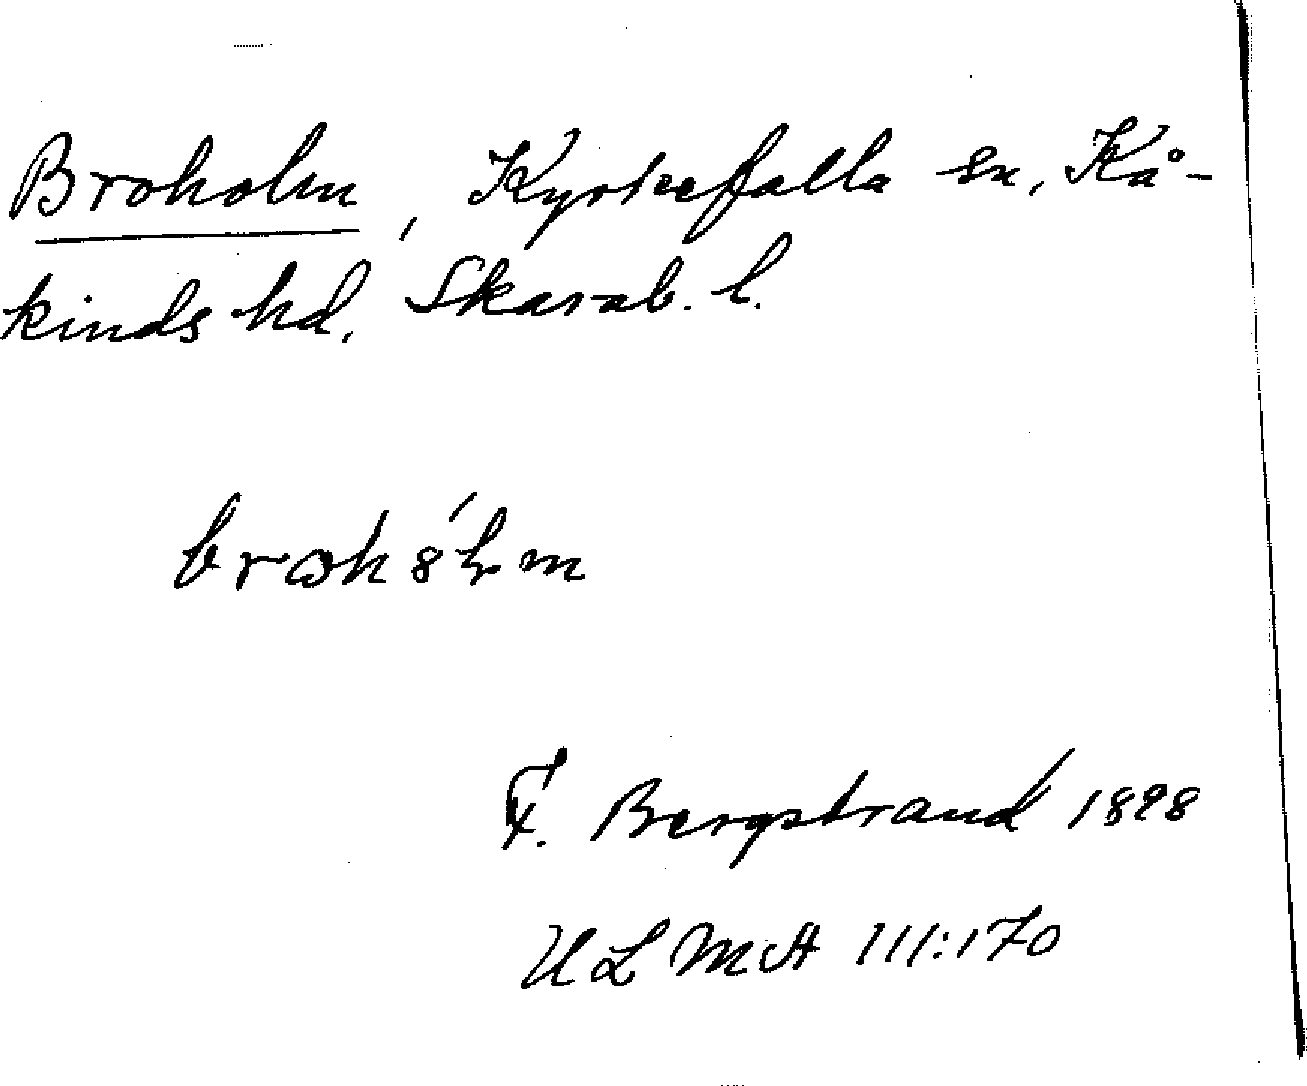 Broholm, Kyrkefalla sn, Kå-
kinds hd. Skarab. l.
F. Bergstrand 1898
ULMA 111:170